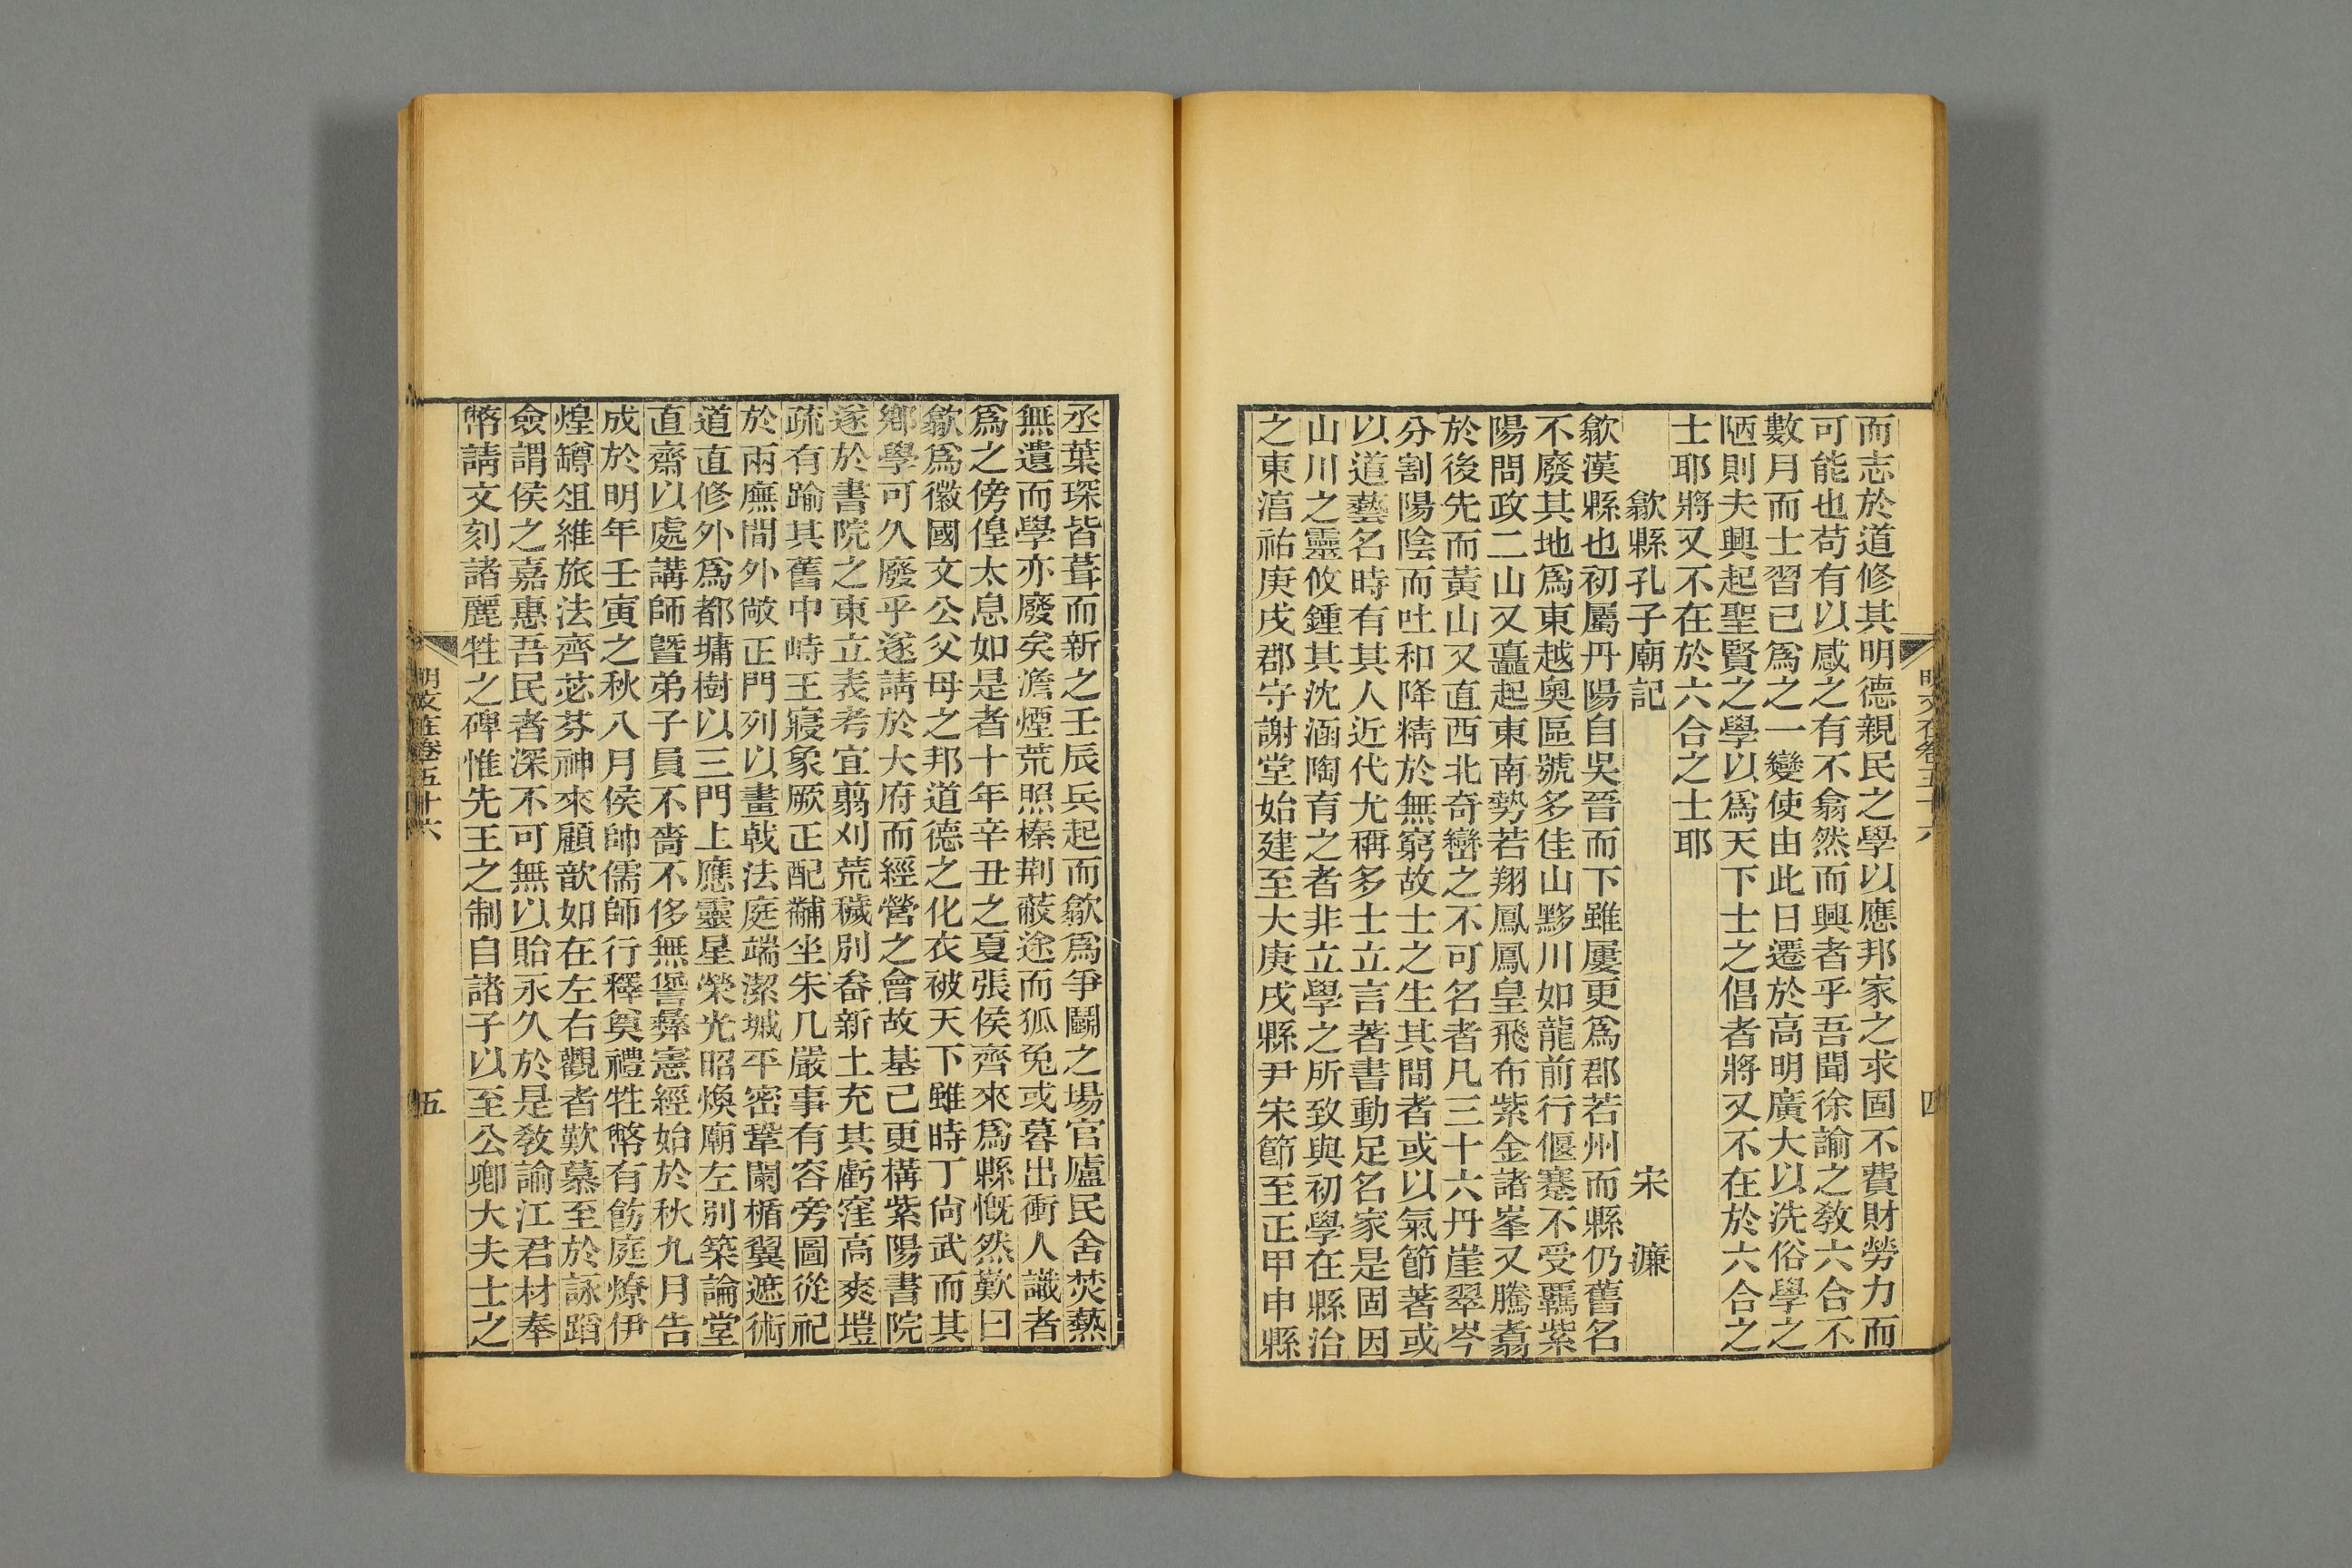 而志於道修其明德親民之學以應邦家之求固不費財勞力而
可能也苟有以感之有不翕然而興者乎吾聞徐諭之敎六合不
數月而士習已爲之一變使由此日遷於高明廣大以洗俗學之
陋則夫興起聖賢之學以爲天下士之倡者將又不在於六合之
士耶將又不在於六合之士耶
歙縣孔子廟記 宋 濂
歙漢縣也初屬丹陽自吳晉而下雖屢更爲郡若州而縣仍舊名
不廢其地爲東越奧區號多佳山黟川如龍前行偃蹇不受羈紫
陽問政二山又矗起東南勢若翔鳳鳳皇飛布紫金諸峯又騰翥
於後先而黃山又直西北奇巒之不可名者凡三十六丹崖翠岑
分割陽陰而吐和降精於無窮故士之生其間者或以氣節著或
以道藝名時有其人近代尤稱多士立言著書動足名家是固因
山川之靈攸鍾其沈涵陶育之者非立學之所致與初學在縣治
之東湻祐庚戌郡守謝堂始建至大庚戌縣尹宋節至正甲申縣
丞葉琛皆葺而新之壬辰兵起而歙爲爭鬭之場官廬民舍焚爇
無遺而學亦廢矣澹煙荒照榛荆蔽途而狐兔或暮出衝人識者
爲之傍偟太息如是者十年辛丑之夏張侯齊來爲縣慨然歎曰
歙爲徽國文公父母之邦道德之化衣被天下雖時丁尙武而其
鄉學可久廢乎遂請於大府而經營之會故基己更構紫陽書院
遂於書院之東立表考宜翦刈荒穢別畚新土充其虧窪高爽塏
疏有踰其舊中峙王寢象厥正配黼坐朱几嚴事有容旁圖從祀
於兩廡間外敞正門列以畫戟法庭端潔墄平密鞏闌楯翼遮術
道直修外爲都墉樹以三門上應靈星榮光昭煥廟左別築論堂
直齋以處講師曁弟子員不啬不侈無諐彝憲經始於秋九月告
成於明年壬寅之秋八月侯帥儒師行釋奠禮牲幣有飭庭燎伊
煌罇俎維旅法齊苾芬神來顧歆如在左右觀者歎慕至於詠蹈
僉謂侯之嘉惠吾民者深不可無以貽永久於是敎諭江君材奉
幣請文刻諸麗牲之碑惟先王之制自諸子以至公卿大夫士之
明文在卷五十六
四
明文在卷五十六
五